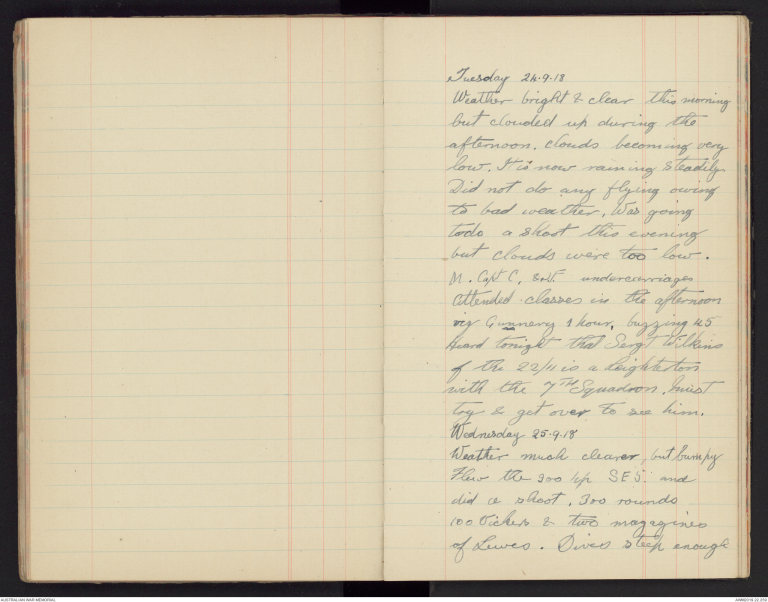 Tuesday 24.9.18
Weather bright & clear this morning
but clouded up during the
afternoon. clouds becoming very
low. It is now raining steadily
Did not do any flying owing
to bad weather. Was going
todo a shoot this evening
but clouds were too low.
M. C, undercarriages
attended classes in the afternoon
viz Gunnery 1 hour, buzzing 45
Heard tonight that Sergt Wilkins
of the 22/11 is a
with the 7TH Squadron, must
try & get over to see him.
Wednesday 25.9.18
Weather much clearer, but bumpy
Flew the 200 h/p SE5. and
did a shoot. 300 rounds
100 Vickers & two magazines
of Lewes. Dives steep enough
AUSTRALIAN WAR MEMORIAL